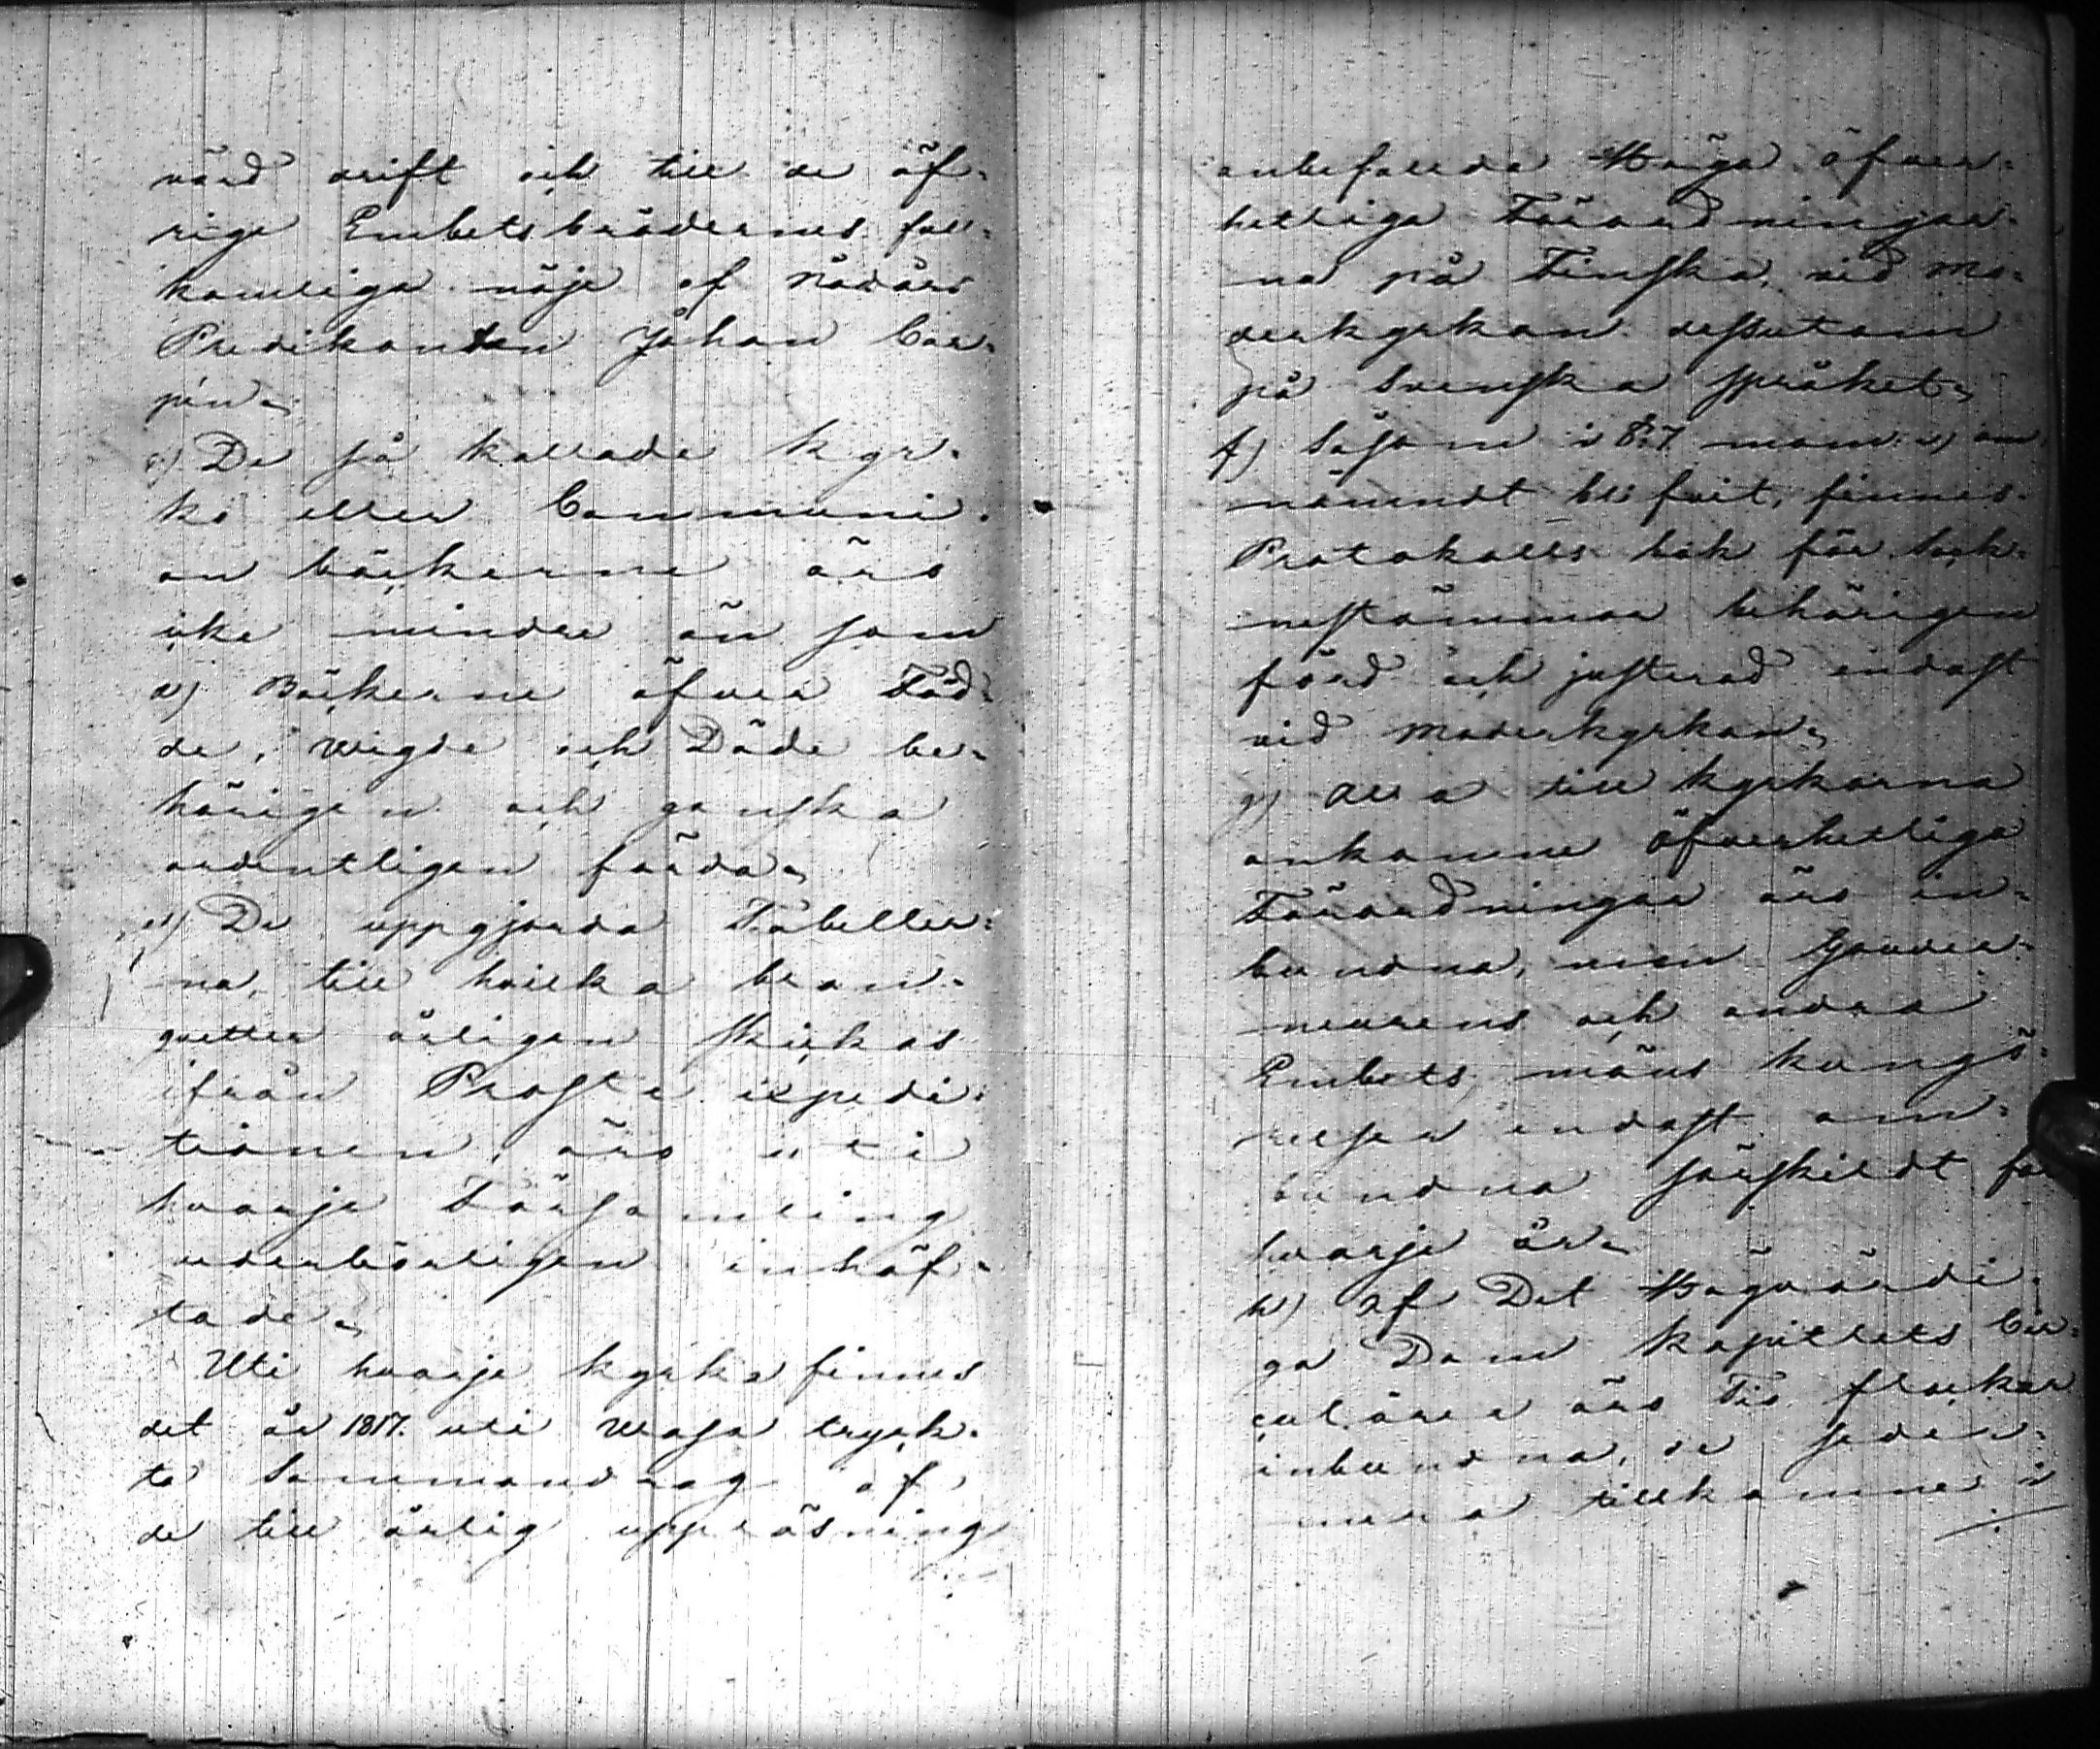 värd drift och till de öf-
rige Embetsbrödernes full-
komliga nöje af Nådårs
Predikanten Johan Car-
pén.
c) De så kallade Kyr-
ko eller Communi-
on böckerne äro
icke mindre än som
d) Böckerne öfver Föd-
de, Wigde och Döde be-
hörigen och ganska
ordentligen förda.
e) De uppgjorda Tabeller-
na, till hvilka blan-
quetter årligen skickas
ifrån Prosts expedi-
tionen, äro uti
hvarje Församling
vederbörligen inhäf-
tade.
Uti hvarje kyrka finnes
det år 1817. uti Wasa tryck-
ta Sammandrag af
de till årlig uppläsning
anbefallda Höga öfver-
hetliga Förordningar-
na på Finska, vid mo-
derkyrkan dessutom
på Svenska språket.
f) Såsom i §. 7 mom. om
nämndt blifvit, finnes
Protokolls bok för Sock-
nestämmor behörigen
förd och justerad endast
vid Moderkyrkan.
g) Alla till kyrkorna
ankomne öfverhetliga
Förordningar äro in-
bundna, men Gouver-
neurens och andra
Embets mäns kungö-
relser endast om-
bundna särskildt för
hvarje år.
h) Af Det Högvördi-
ga Dom kapitlets Cir-
culärer äro Tio flockar
inbundna, de seder-
mera tillkomne i